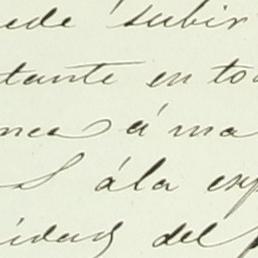 ede subir
tante en to
nca á ma
S ála esp
idad del